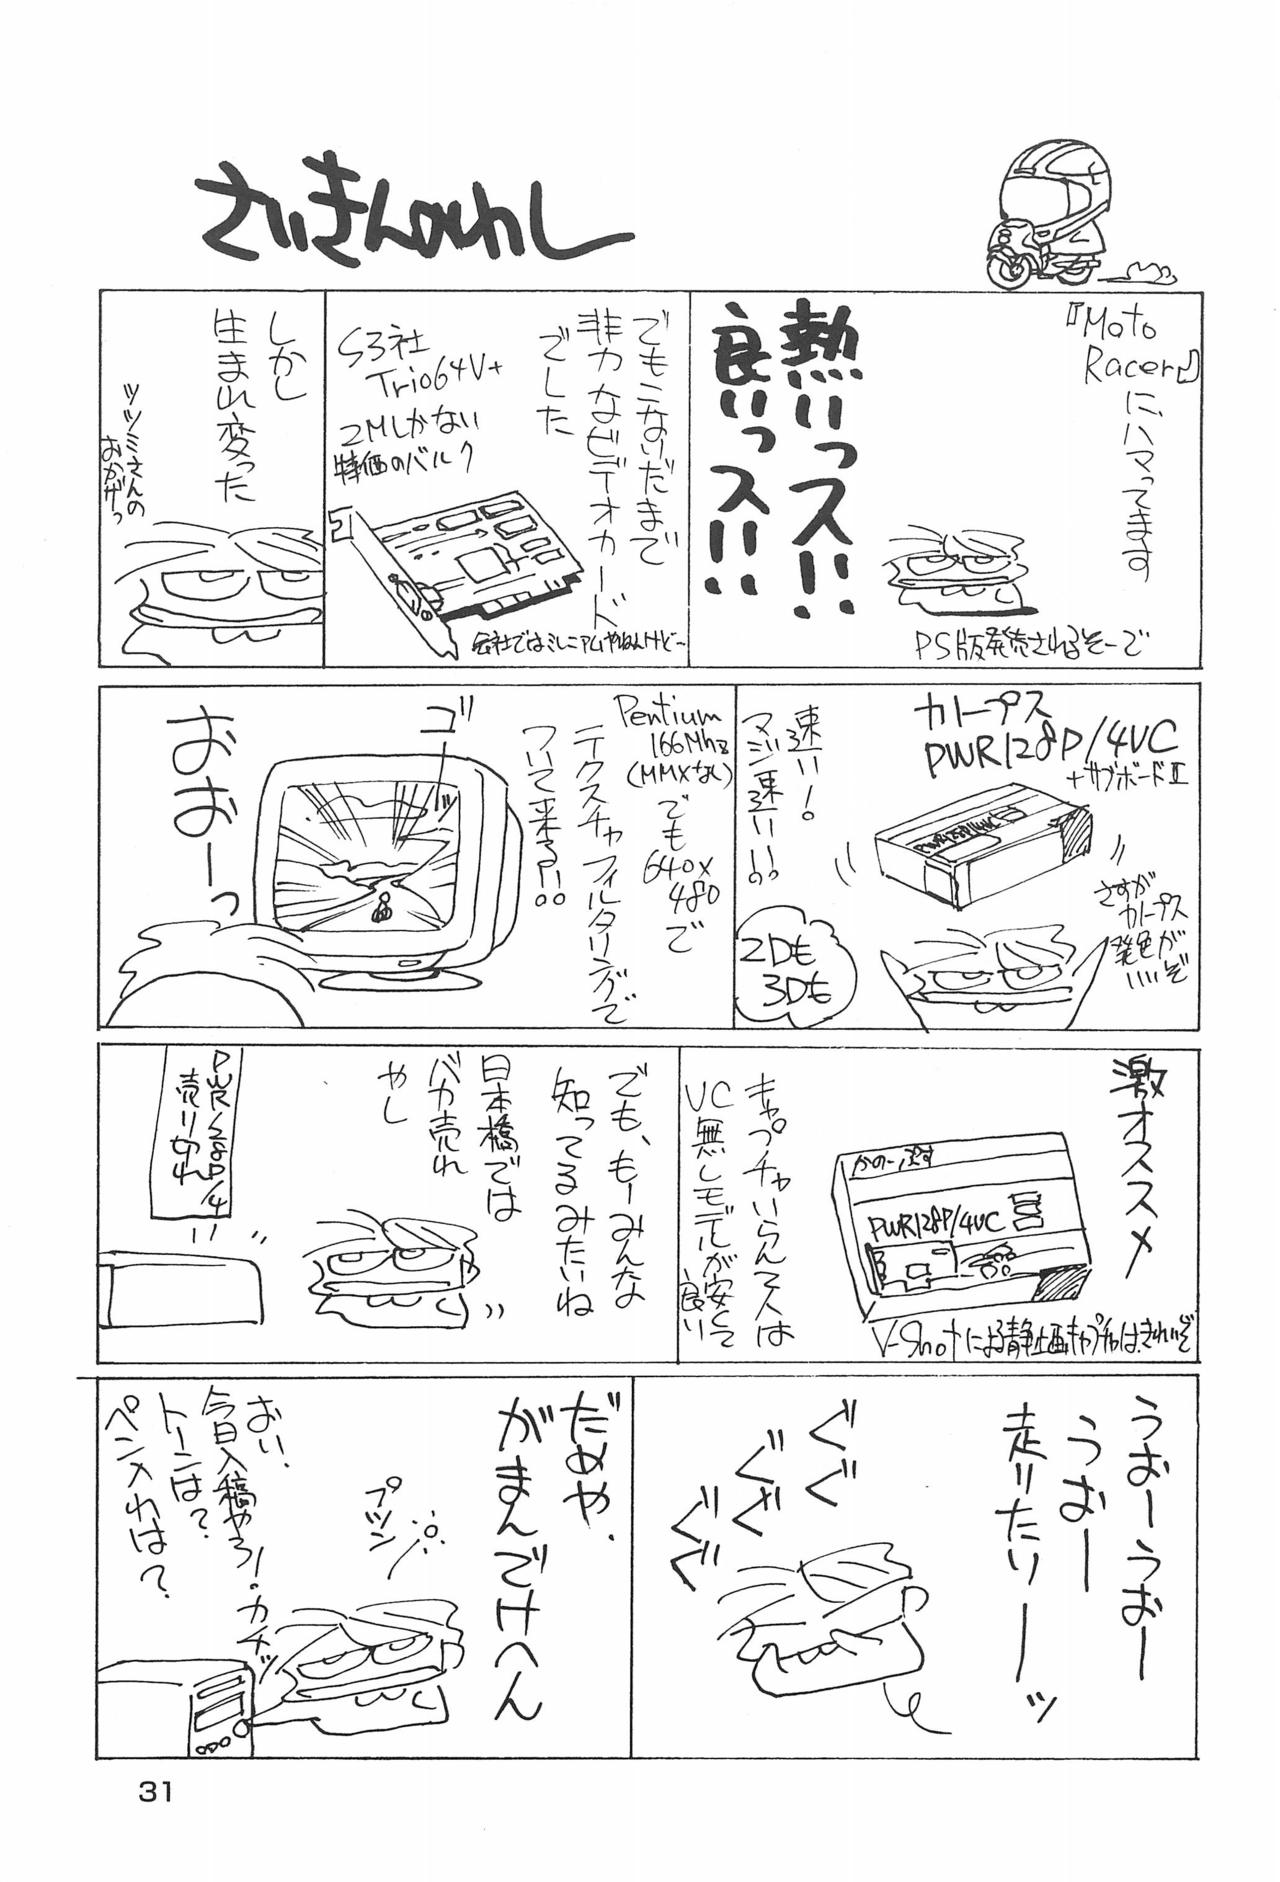 さいきんのわし
『Moto
Racer』
にハマってます
熱いっス!!
良いっス!!
PS版発売されるそーで
でもこないだまで
非力なビデオカード
でした
S3社
Trio64V+
2Mしかない
特価のバルク
会社ではミレニアムやねんけどー
しかし
生まれ変った
ツツミさんの
おかげっ
カノープス
PWR128P/4VC
+サブボードⅡ
PWR128P/4VC
速い!
マジ速い!!。
さすが
カノープス
発色が
いいぞ
2Dも
3Dも
Pentium
166Mhz
(MMXなし)
でも
640×
480で
テクスチャフィルタリングで
ついて来る!?。
ゴ
おおーっ
激オススメ
かのーぷす
PWR128P/4VC
V-Shotによる静止画キャプチャはきれいぞ
キャプチャいらん人は
VC無しモデルが安くて
良い
でも、もーみんな
知ってるみたいね
日本橋では
バカ売れ
やし
PWR128P/4
売り切れ
うおーうおー
うおー
走りたりーーッ
ぐぐ
ぐぐ
ぐぐ
だめや、
がまんでけへん
プツン
カチッ
おい、
今日入稿やろ!
トーンは?
ペン入れは?
31